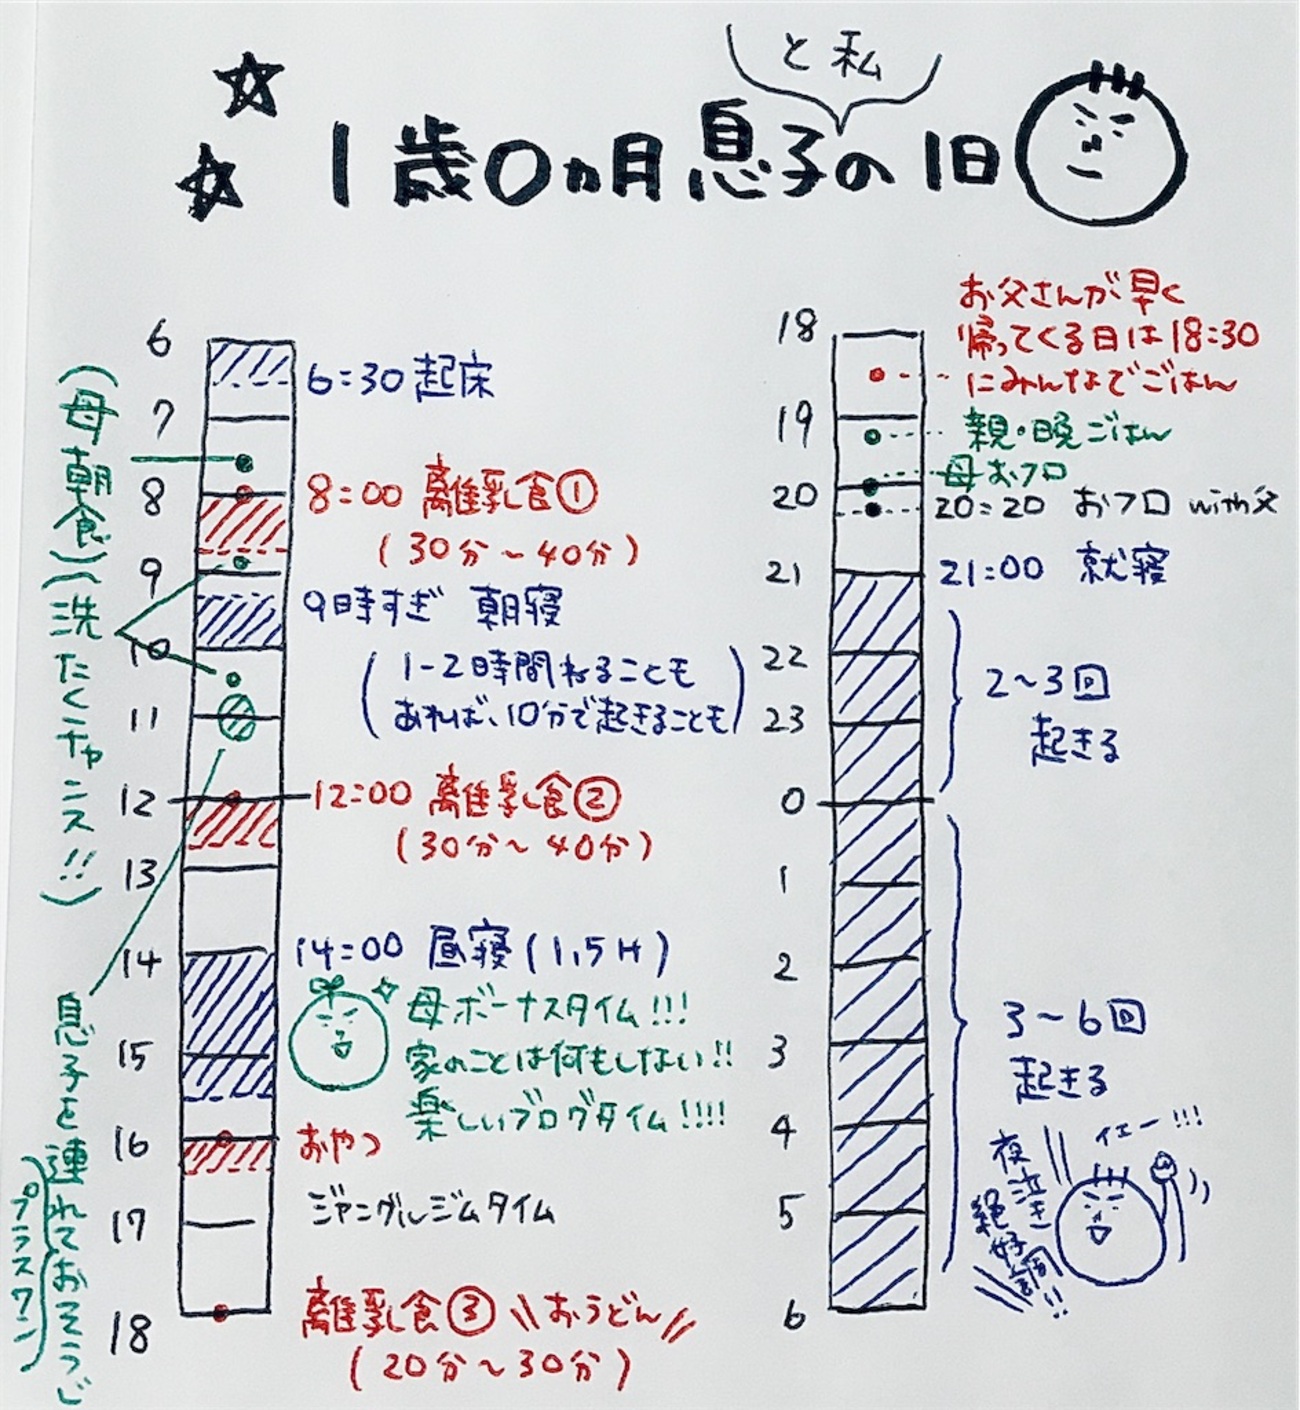 と私
1歳0ヵ月息子の1日
6
6:30 起床
7
(母朝食)
8
8:00 離乳食①
(30分~40分)
9
9時すぎ 朝寝
(1-2時間ねることも
あれば、10分で起きることも)
(洗たくチャンス!!)
10
11
12
12:00 離乳食②
(30分~40分)
13
14
14:00 昼寝(1.5H)
母ボーナスタイム!!!
家のことは何もしない!!
楽しいブログタイム!!!!
15
16
おやつ
17
ジャングルジムタイム
18
離乳食③ \\おうどん//
(20分~30分)
息子を連れておそうじ
プラスワン
18
お父さんが早く
帰ってくる日は18:30
にみんなでごはん
19
親・晩ごはん
母おフロ
20
20:20 おフロ with父
21
21:00 就寝
22
2~3回
起きる
23
0
1
2
3
3~6回
起きる
4
5
6
イエー!!!
夜泣き
絶好調!!